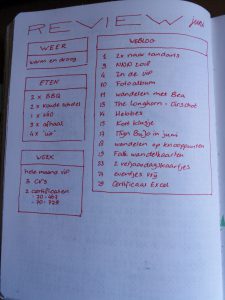 REVIEW juni
WEER
warm en droog
ETEN
2 x BBQ
2 x koude schotel
1 x
3 x afhaal
4 x "uit"
WERK
hele maand vrij
3 CV's
2 certificaten
- 70-461
- 70-778
WEBLOG
1 2x naar tandarts
3 NNN zoil
4 In de VIP
10 Fotoalbum
11 wandelen met Bea
13 The Longhorn - Oirschot
14 Hebbes
15 Kort klusje
17 Mijn BuJo in juni
18 wandelen op knooppunten
19 Falk wandelkaarten
23 2 verjaardagskaartjes
eventjes vrij
29 Certificaat Excel